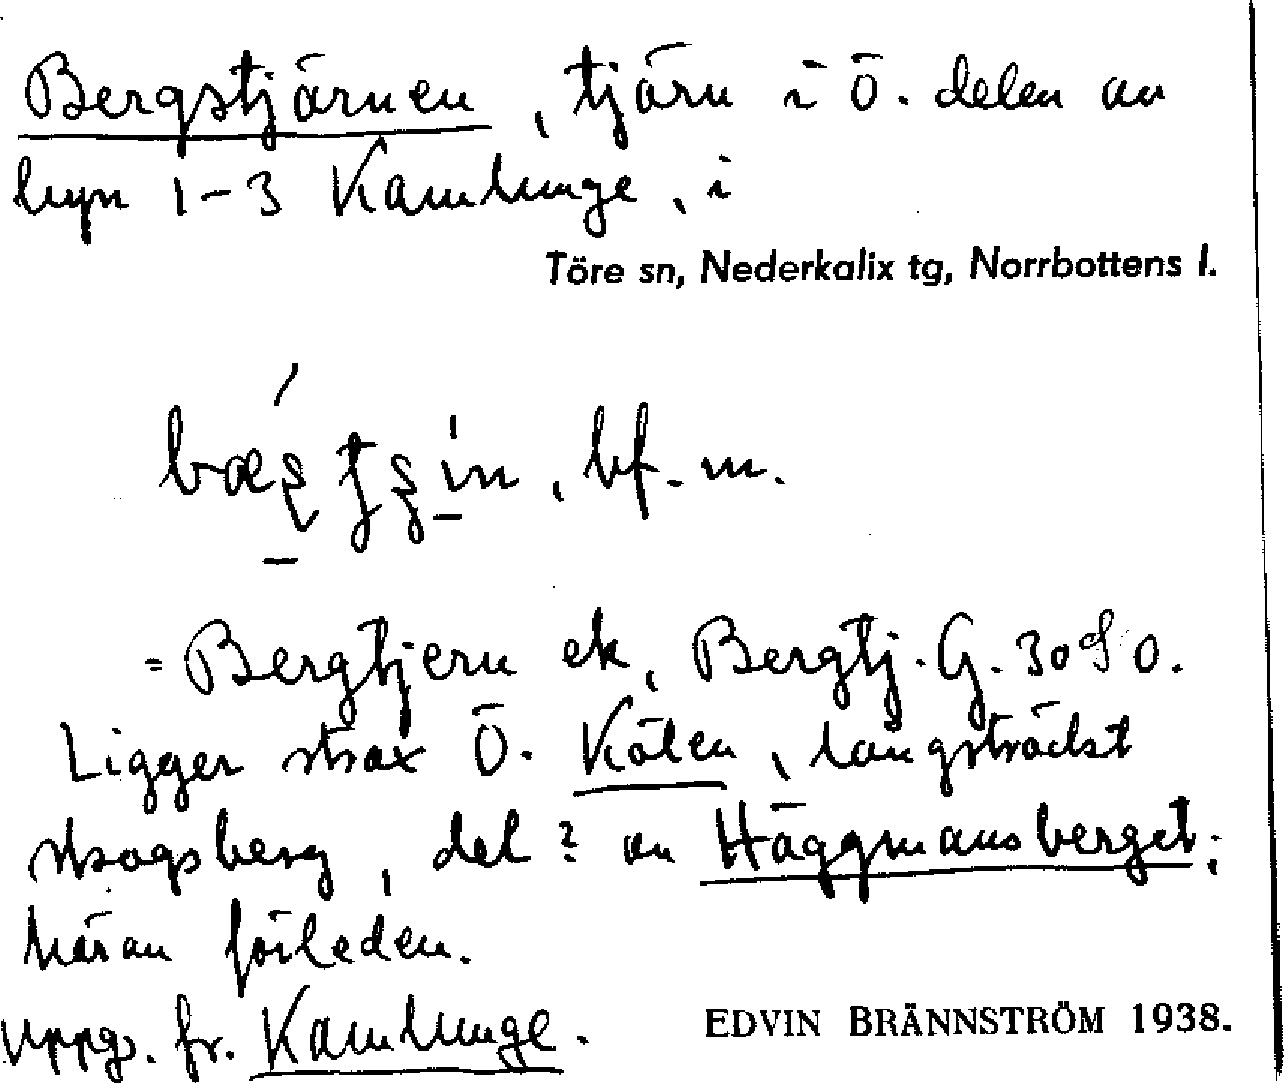 Bergstjärnen, tjärn i ö. delen av
byn 1-3 Kamlunge, i
Töre sn, Nederkalix tg, Norrbottens l.
bf. m.
= Bergtjern ek, Bergtj. G. 30 d 0.
Ligger strax ö. Kölen, långsträckt
skogsberg, del? av Häggmansberget;
härav förleden.
Uppg. fr. Kamlunge.
EDVIN BRÄNNSTRÖM 1938.